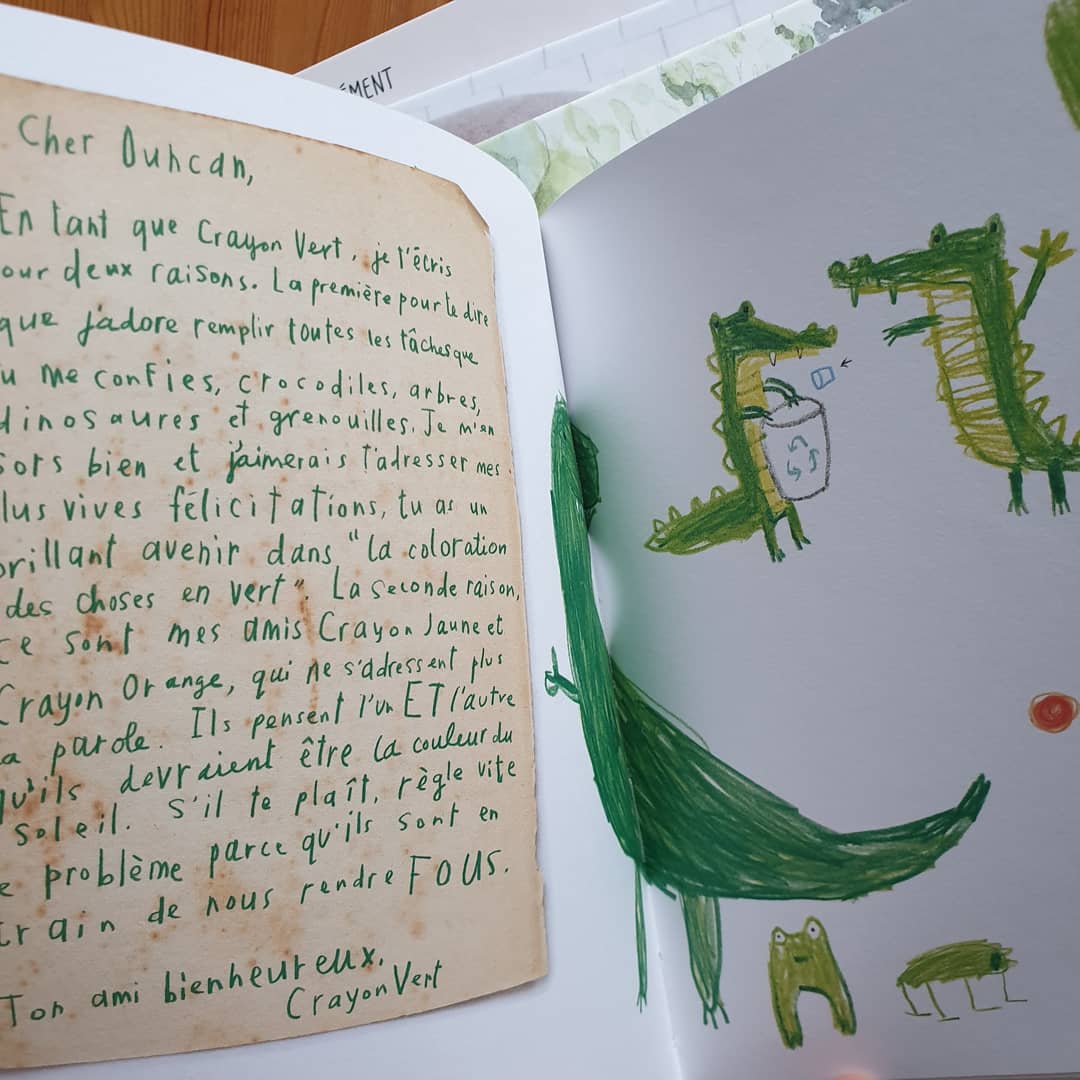 EMENT
Cher Duncan,
En tant que Crayon Vert, je t'écris
our deux raisons. La première pour te dire
que j'adore remplir toutes les tâches que
u me confies, crocodiles, arbres,
dinosaures et grenouilles. Je m'en
sors bien et j'aimerais t'adresser mes
lus vives félicitations, tu as un
brillant avenir dans "la coloration
des choses en vert". La seconde raison,
ce sont mes amis Crayon Jaune et
Crayon Orange, qui ne s'adressent plus
a parole. Ils pensent l'un ET l'autre
qu'ils devraient être la couleur du
soleil. S'il te plaît, règle vite
e problème parce qu'ils sont en
train de nous rendre FOUS.
Ton ami bienheureux,
Crayon Vert